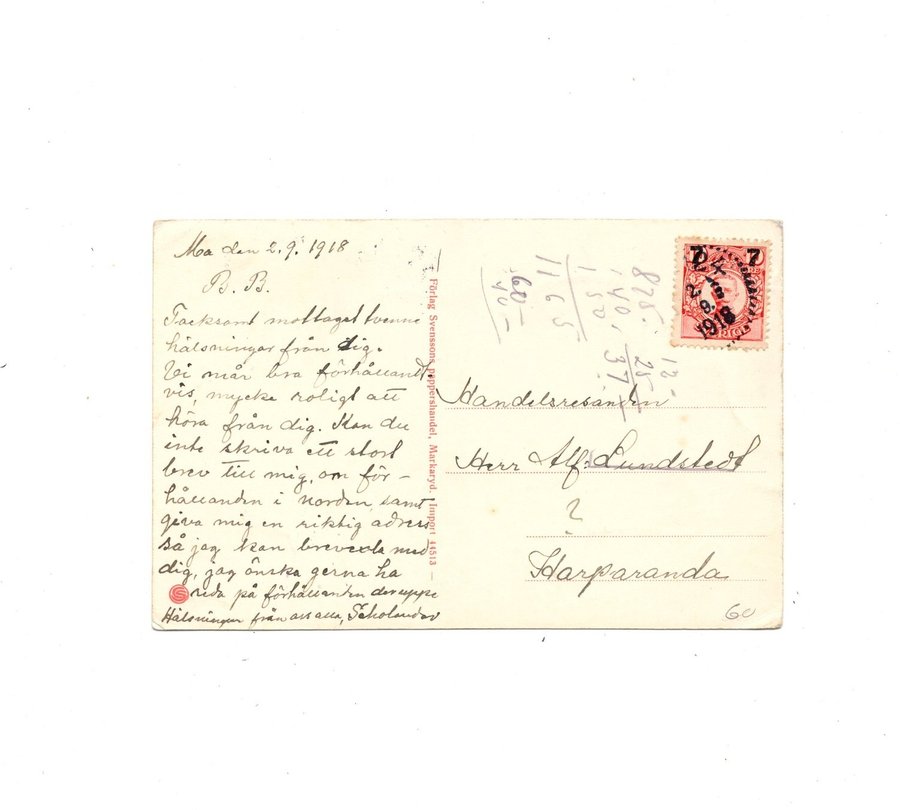 Ma den 2.9. 1918
B. B.
Tacksamt mottaget tvenne
hälsningar från dig.
Vi mår bra förhålland
vis, mycke roligt att
höra från dig. Kan du
inte skriva ett stort
brev till mig, om för-
hållanden i norden samt
giva mig en riktig adress
så jag kan brevexla med
dig, jag önska gerna ha
reda på förhållanden deruppe
Hälsningar från oss alla,
— Förlag. Svenssons pappershandel, Markaryd. Import 44513 —
875.
140,
1 50
11 65
60 –
40
12 –
25
37
7 7
24
2
9
1918
Handelsresanden
Herr Alf. Lundstedt
?
Harparanda
60